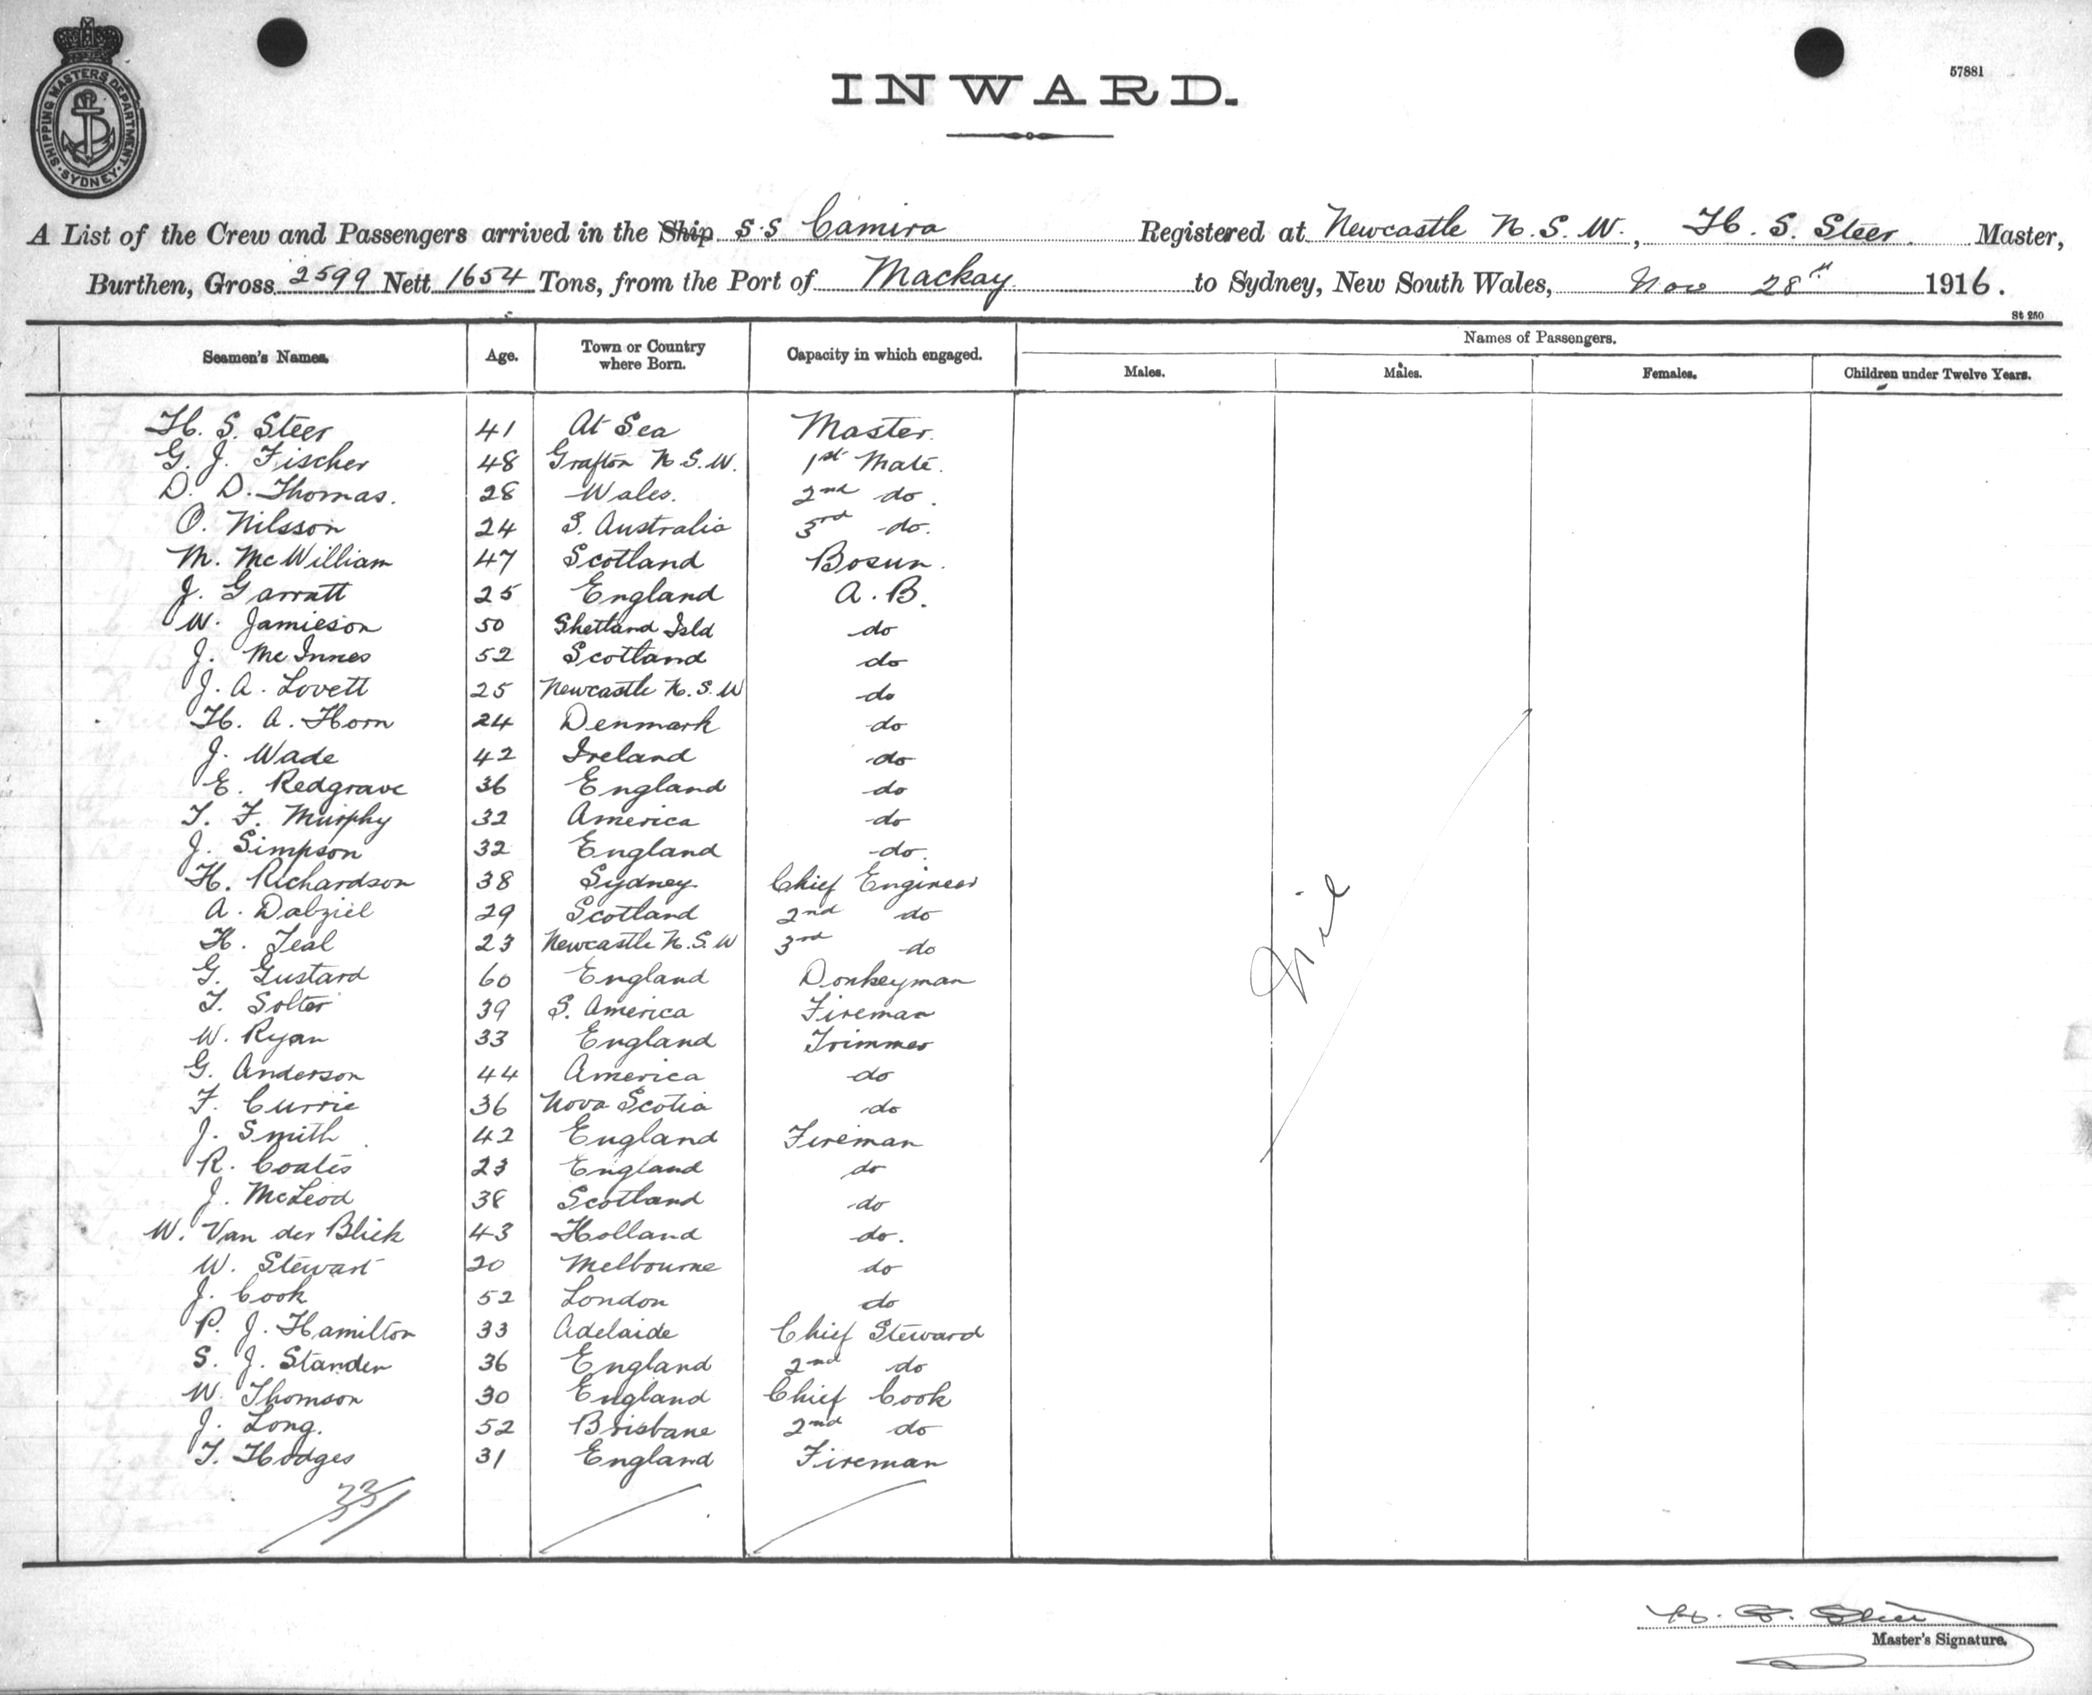 SHIPPING MASTERS DEPARTMENT
SYDNEY
57881
INWARD.
A List of the Crew and Passengers arrived in the Ship S.S Camira Registered at Newcastle N.S.W., H. S. Steer Master,
Burthen, Gross 2599 Nett 1654 Tons, from the Port of Mackay to Sydney, New South Wales, Nov 28th 1916.
St 250
Names of Passengers.
Seamen's Names. Age. Town or Country where Born. Capacity in which engaged. Males. Males. Females. Children under Twelve Years.
H. S. Steer 41 At Sea Master.
G. J. Fischer 48 Grafton N.S.W. 1st Mate.
D. D. Thomas. 28 Wales. 2nd do.
O. Nilsson 24 S. Australia 3rd do.
M. McWilliam 47 Scotland Bosun.
J. Garratt 25 England A.B.
W. Jamieson 50 Shetland Isld do
J. McInnes 52 Scotland do
J. A. Lovett 25 Newcastle N.S.W do
H. A. Horn 24 Denmark do
J. Wade 42 Ireland do
E. Redgrave 36 England do
T. F. Murphy 32 America do
J. Simpson 32 England do.
H. Richardson 38 Sydney Chief Engineer
A. Dalziel 29 Scotland 2nd do
H. Teal 23 Newcastle N.S.W 3rd do
G. Gustard 60 England Donkeyman
T. Solter 39 S. America Fireman
W. Ryan 33 England Trimmer
G. Anderson 44 America do
F. Currie 36 Nova Scotia do
J. Smith 42 England Fireman
R. Coates 23 England do
J. McLeod 38 Scotland do
W. Van der Bliek 43 Holland do.
W. Stewart 20 Melbourne do
J. Cook 52 London do
P. J. Hamilton 33 Adelaide Chief Steward
S. J. Standen 36 England 2nd do
W. Thomson 30 England Chief Cook
J. Long. 52 Brisbane 2nd do
T. Hodges 31 England Fireman
33/
Nil
H. S. Steer
Master's Signature.